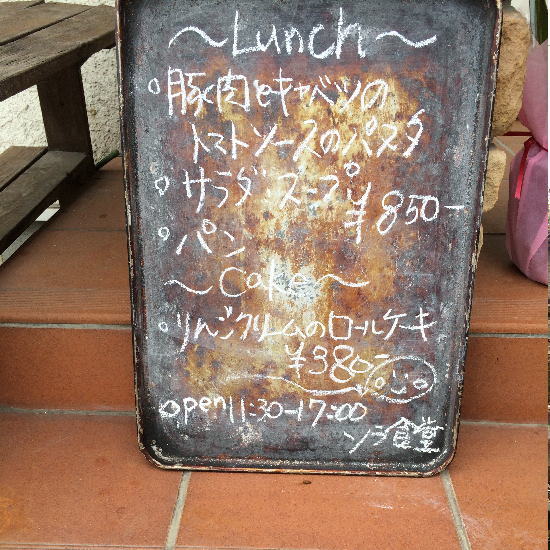 ～Lunch～
○豚肉とキャベツの
トマトソースのパスタ
○サラダ スープ
¥850-
○パン
～Cake～
○りんごクリームのロールケーキ
¥380-
open11:30-17:00
ソラ食堂